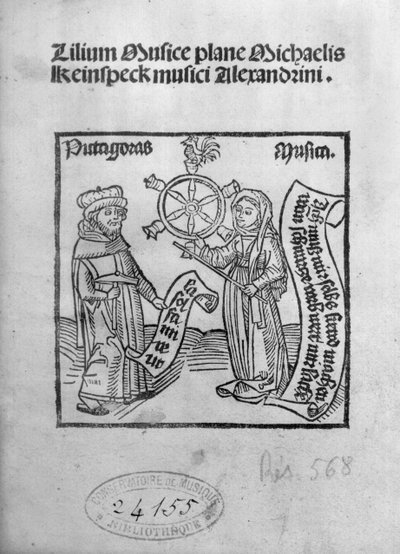 Lilium Musice plane Michaelis
Keinspeck musici Alexandrini.
Putagoras
Musica.
la
sol
fa
mi
re
ut
Rés. 568
CONSERVATOIRE DE MUSIQUE
24155
BIBLIOTHÈQUE